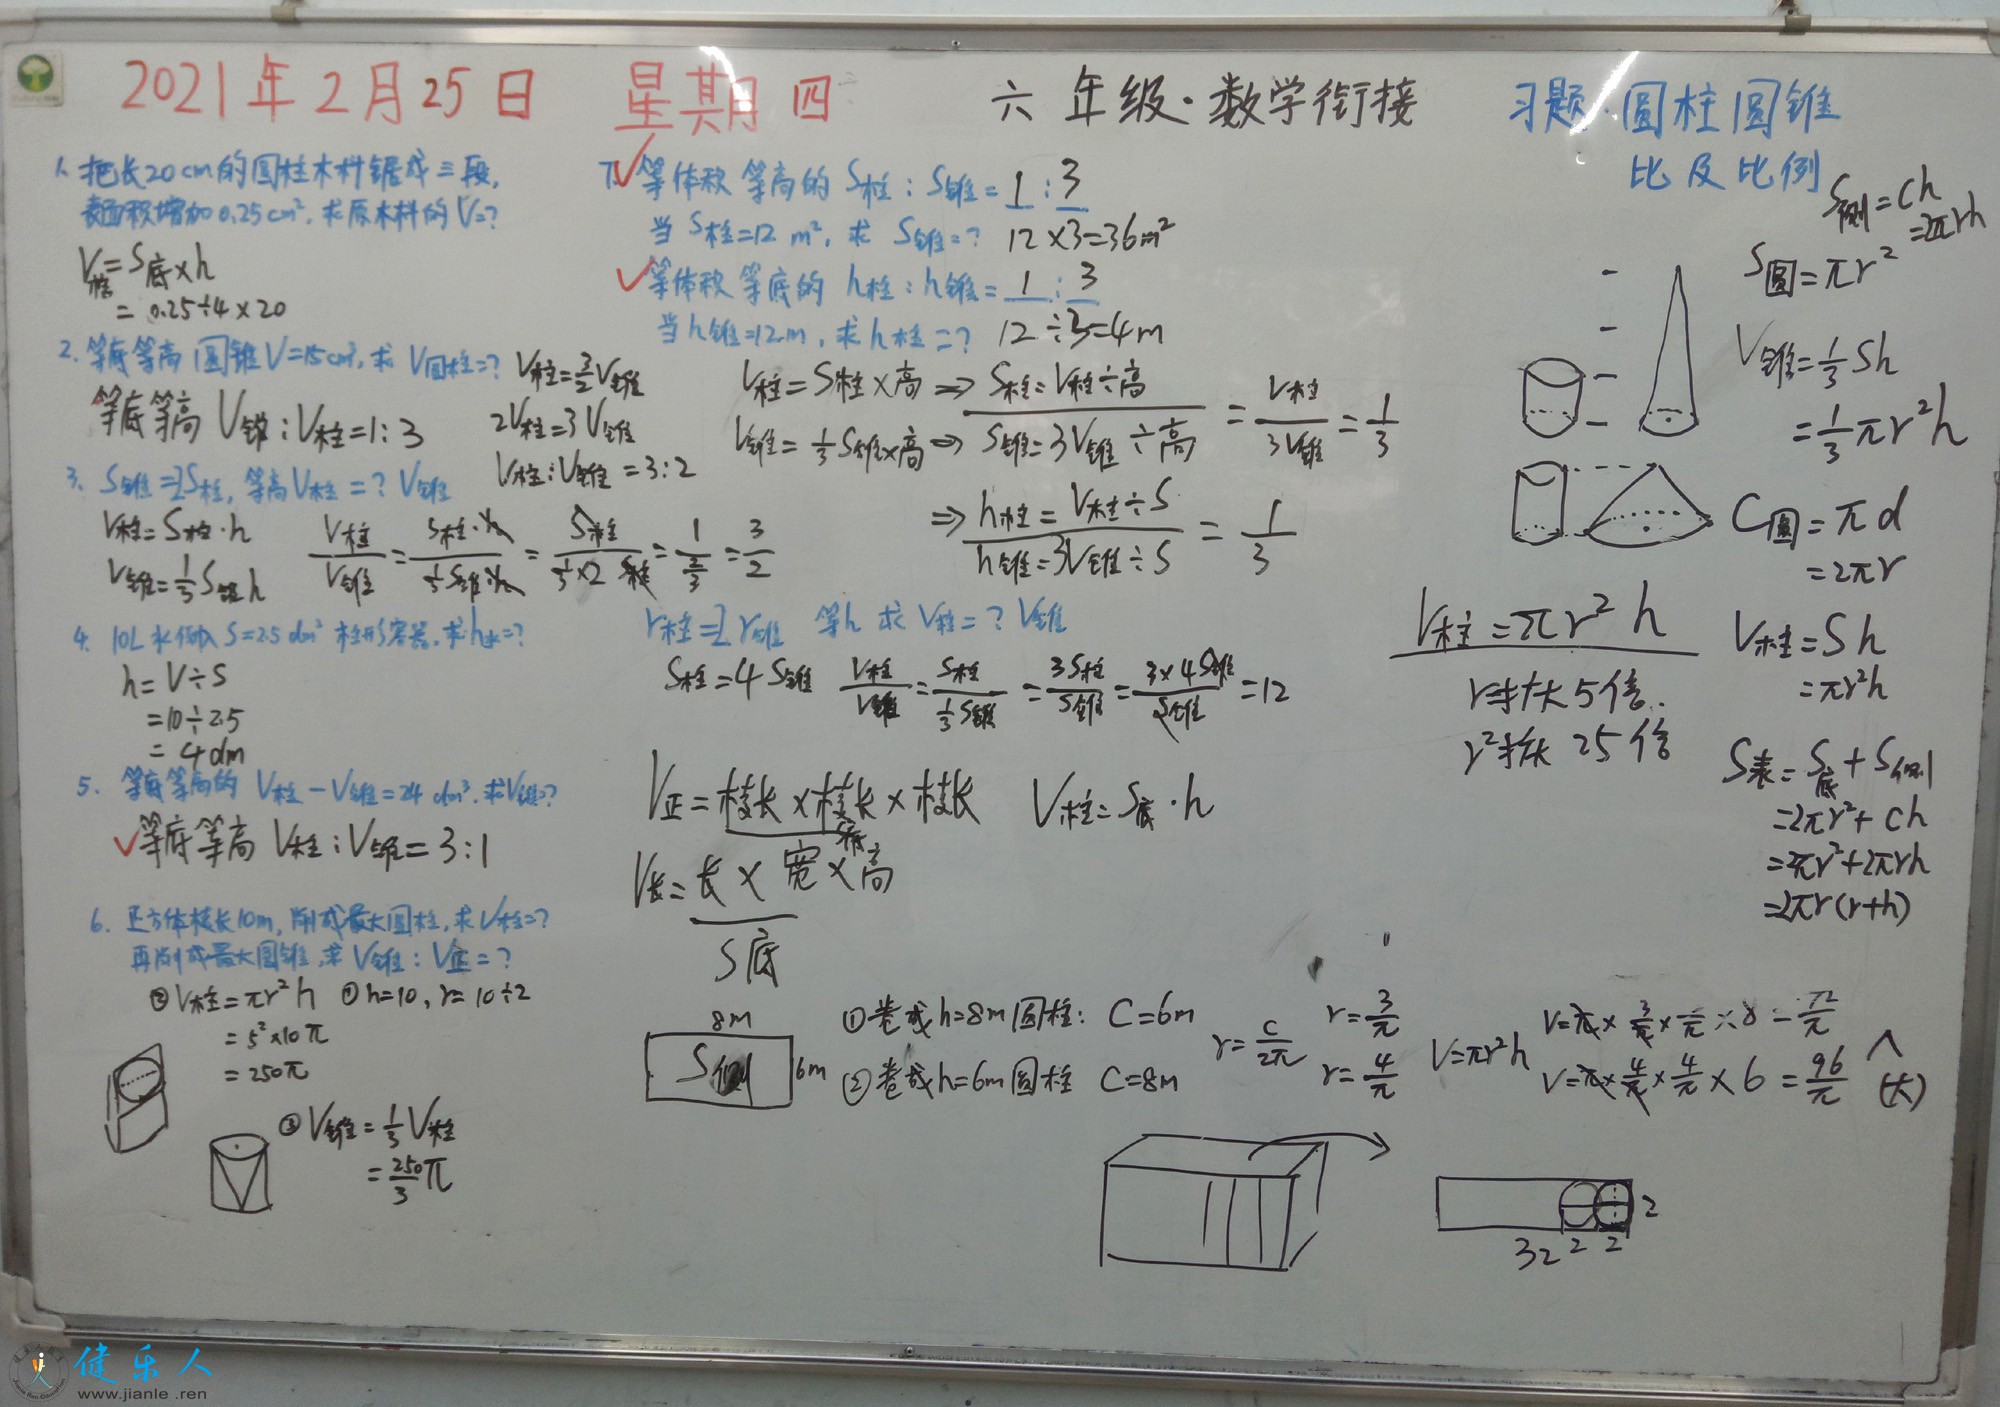 2021年2月25日 星期四 六年级·数学衔接 习题·圆柱圆锥
比及比例
1. 把长20cm的圆柱木料锯成三段,
表面积增加0.25cm², 求原木料的V=?
V柱=S底×h
= 0.25÷4×20
2. 等底等高圆锥V=15cm³, 求V圆柱=?
等底等高 V锥:V柱=1:3
V柱=3/2V锥
2V柱=3V锥
V柱:V锥=3:2
3. S锥=2S柱, 等高V柱=? V锥
V柱=S柱·h
V锥=1/3S锥h
V柱/V锥=S柱·h/1/3S锥·h=S柱/1/3×2S柱=1/2/3=3/2
4. 10L水倒入S=2.5dm²柱形容器, 求h水=?
h=V÷S
=10÷2.5
=4dm
5. 等底等高的V柱-V锥=24dm³, 求V锥=?
✓等底等高 V柱:V锥=3:1
6. 正方体棱长10m, 削成最大圆柱, 求V柱=?
再削成最大圆锥, 求V锥:V正=?
②V柱=πr²h ①h=10, r=10÷2
=5²×10π
=250π
③V锥=1/3V柱
=250/3π
7. ✓等体积等高的S柱:S锥=1:3
当S柱=12m², 求S锥=? 12×3=36m²
✓等体积等底的h柱:h锥=1:3
当h锥=12m, 求h柱=? 12÷3=4m
V柱=S柱×高⇒S柱=V柱÷高
V锥=1/3S锥×高⇒S锥=3V锥÷高
=V柱/3V锥=1/3
⇒h柱=V柱÷S
h锥=3V锥÷S
=1/3
r柱=2r锥 等h求V柱=? V锥
S柱=4S锥 V柱/V锥=S柱/1/3S锥=3S柱/S锥=3×4S锥/S锥=12
V正=棱长×棱长×棱长 V柱=S底·h
S底
V长=长×宽×高
S底
8m
S侧 6m
①卷成h=8m圆柱: C=6m
②卷成h=6m圆柱 C=8m
r=C/2π
r=3/π
r=4/π
V=πr²h
V=π×3/π×3/π×8=72/π
V=π×4/π×4/π×6=96/π (大)
2
32 2 2
S侧=Ch
=2πrh
S圆=πr²
V锥=1/3Sh
=1/3πr²h
C圆=πd
=2πr
V柱=πr²h
r扩大5倍.
r²扩大25倍
V柱=Sh
=πr²h
S表=S底+S侧
=2πr²+Ch
=2πr²+2πrh
=2πr(r+h)
健乐人
www.jianle.ren